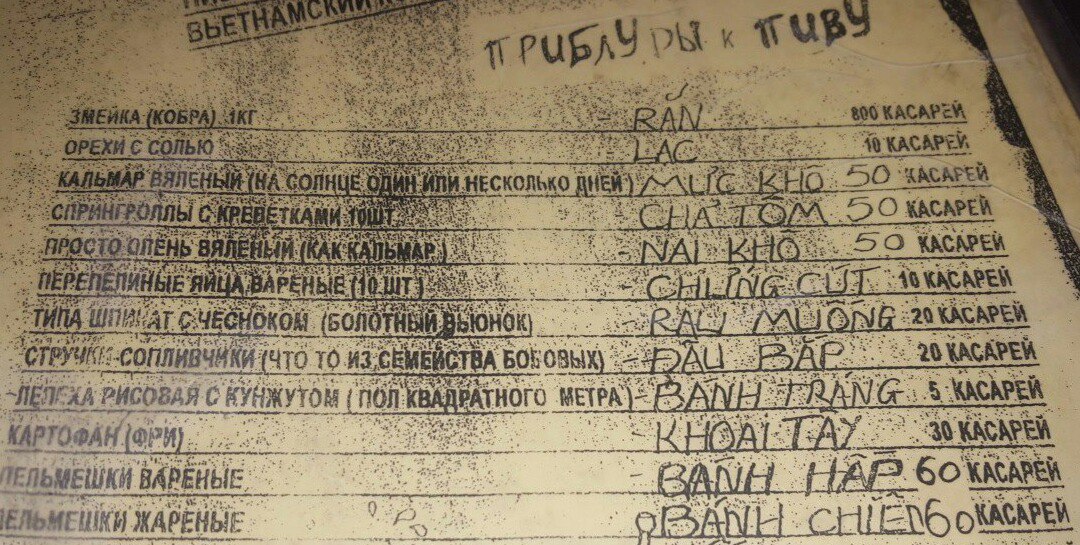 ВЬЕТНАМСКИЙ
ПРИБЛУДЫ К ПИВУ
ЗМЕЙКА (КОБРА) 1КГ - RẮN 800 КАСАРЕЙ
ОРЕХИ С СОЛЬЮ - LAC 10 КАСАРЕЙ
КАЛЬМАР ВЯЛЕНЫЙ (НА СОЛНЦЕ ОДИН ИЛИ НЕСКОЛЬКО ДНЕЙ) MỰC KHÔ 50 КАСАРЕЙ
СПРИНГРОЛЛЫ С КРЕВЕТКАМИ 10ШТ. CHẢ TÔM 50 КАСАРЕЙ
ПРОСТО ОЛЕНЬ ВЯЛЕНЫЙ (КАК КАЛЬМАР) - NAI KHÔ 50 КАСАРЕЙ
ПЕРЕПЕЛИНЫЕ ЯЙЦА ВАРЕНЫЕ (10 ШТ) - CHỨNG CÚT 10 КАСАРЕЙ
ТИПА ШПИНАТ С ЧЕСНОКОМ (БОЛОТНЫЙ ВЬЮНОК) - RAU MUỐNG 20 КАСАРЕЙ
СТРУЧКИ-СОПЛИВЧИКИ (ЧТО ТО ИЗ СЕМЕЙСТВА БОБОВЫХ) - ĐẬU BẮP 20 КАСАРЕЙ
ЛЕПЕХА РИСОВАЯ С КУНЖУТОМ (ПОЛ КВАДРАТНОГО МЕТРА) - BÁNH TRÁNG 5 КАСАРЕЙ
КАРТОФАН (ФРИ) - KHOAI TÂY 30 КАСАРЕЙ
ПЕЛЬМЕШКИ ВАРЕНЫЕ BÁNH HẤP 60 КАСАРЕЙ
ПЕЛЬМЕШКИ ЖАРЕНЫЕ BÁNH CHIÊN 60 КАСАРЕЙ